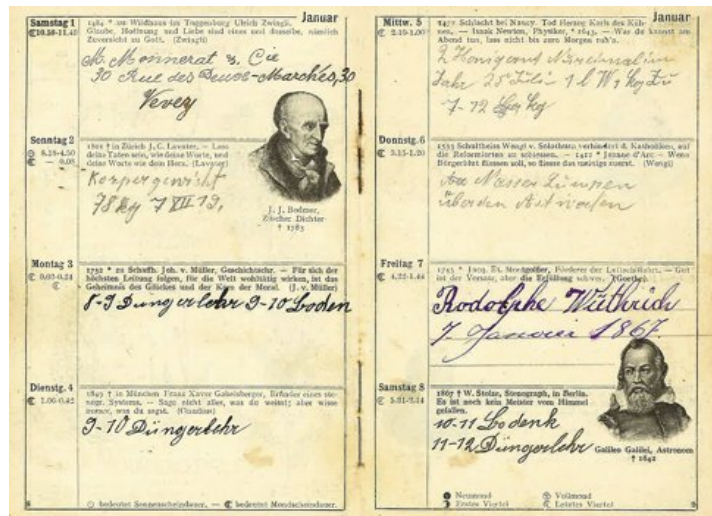 Januar
Samstag 1
1484 * zu Wildhaus im Toggenburg Ulrich Zwingli.
Glaube, Hoffnung und Liebe sind eines und dasselbe, nämlich
Zuversicht zu Gott. (Zwingli)
M. Monnerat & Cie
30 Rue des Deux-Marchés, 30
Vevey
Sonntag 2
1801 † in Zürich J. C. Lavater. — Lass
deine Taten sein, wie deine Worte, und
deine Worte wie dein Herz. (Lavater)
Korpergewicht
78 kg 7 XII 19.
J. J. Bodmer,
Zürcher Dichter
† 1783
Montag 3
1752 * zu Schaffh. Joh. v. Müller, Geschichtschr. — Für sich der
höchsten Leitung folgen, für die Welt wohltätig wirken, ist das
Geheimnis des Glückes und der Kern der Moral. (J. v. Müller)
8-9 Düngerlehr 9-10 Boden
Dienstg. 4
1849 † in München Franz Xaver Gabelsberger, Erfinder eines ste-
nogr. Systems. — Sage nicht alles, was du weisst; aber wisse
immer, was du sagst. (Claudius)
9-10 Düngerlehr
bedeutet Sonnenscheindauer. — bedeutet Mondscheindauer.
Januar
Mittw. 5
1477 Schlacht bei Nancy. Tod Herzog Karls des Küh-
nen. — Isaac Newton, Physiker, * 1643. — Was du kannst am
Abend tun, lass nicht bis zum Morgen ruh'n.
2 Honig
Jahr 25 Juli 1 l
7-12 kg
Donnstg. 6
1533 Schultheiss Wengi v. Solothurn verhindert d. Katholiken, auf
die Reformierten zu schiessen. — 1412 * Jeanne d'Arc — Wenn
Bürgerblut fliessen soll, so fliesse das meinige zuerst. (Wengi)
Freitag 7
1745 * Jacq. Et. Montgolfier, Förderer der Luftschiffahrt. — Gut
ist der Vorsatz, aber die Erfüllung schwer. (Goethe)
Rodolphe Wüthrich
7. Janvier 1867.
Samstag 8
1867 † W. Stolze, Stenograph, in Berlin.
Es ist noch kein Meister vom Himmel
gefallen.
10-11 Bodenk
11-12 Düngerlehr
Galileo Galilei, Astronom
† 1642
Neumond Vollmond
Erstes Viertel Letztes Viertel